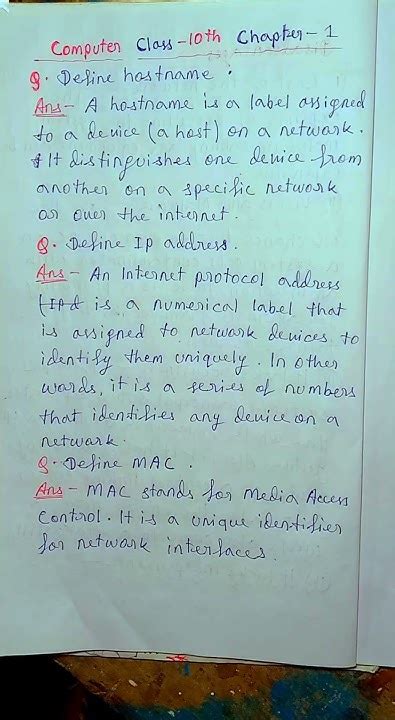 Computer Class-10th Chapter-1
Q. Define hostname.
Ans- A hostname is a label assigned
to a device (a host) on a network.
It distinguishes one device from
another on a specific network
or over the internet.
Q. Define Ip address.
Ans- An Internet protocol address
(IP& is a numerical label that
is assigned to network devices to
identify them uniquely. In other
words, it is a series of numbers
that identifies any device on a
network.
Q. Define MAC.
Ans- MAC stands for Media Access
Control. It is a unique identifier
for network interfaces.